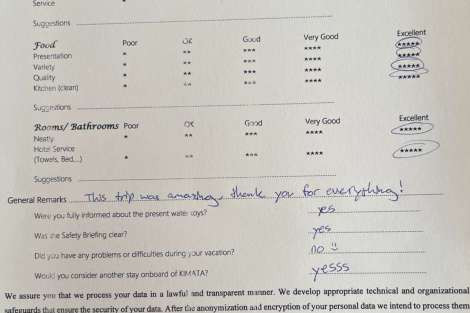 Service
Suggestions
Food Poor OK Good Very Good Excellent
Presentation * ** *** **** *****
Variety * ** *** **** *****
Quality * ** *** **** *****
Kitchen (clean) * ** *** **** *****
Suggestions
Rooms/ Bathrooms Poor OK Good Very Good Excellent
Neatly * ** *** **** *****
Hotel Service
(Towels, Bed,...) * ** *** **** *****
Suggestions
General Remarks This trip was amazing, thank you for everything!
Were you fully informed about the present water toys? yes
Was the Safety Briefing clear? yes
Did you have any problems or difficulties during your vacation? no :)
Would you consider another stay onboard of KIMATA? yesss
We assure you that we process your data in a lawful and transparent manner. We develop appropriate technical and organizational
safeguards that ensure the security of your data. After the anonymization and encryption of your personal data we intend to process them